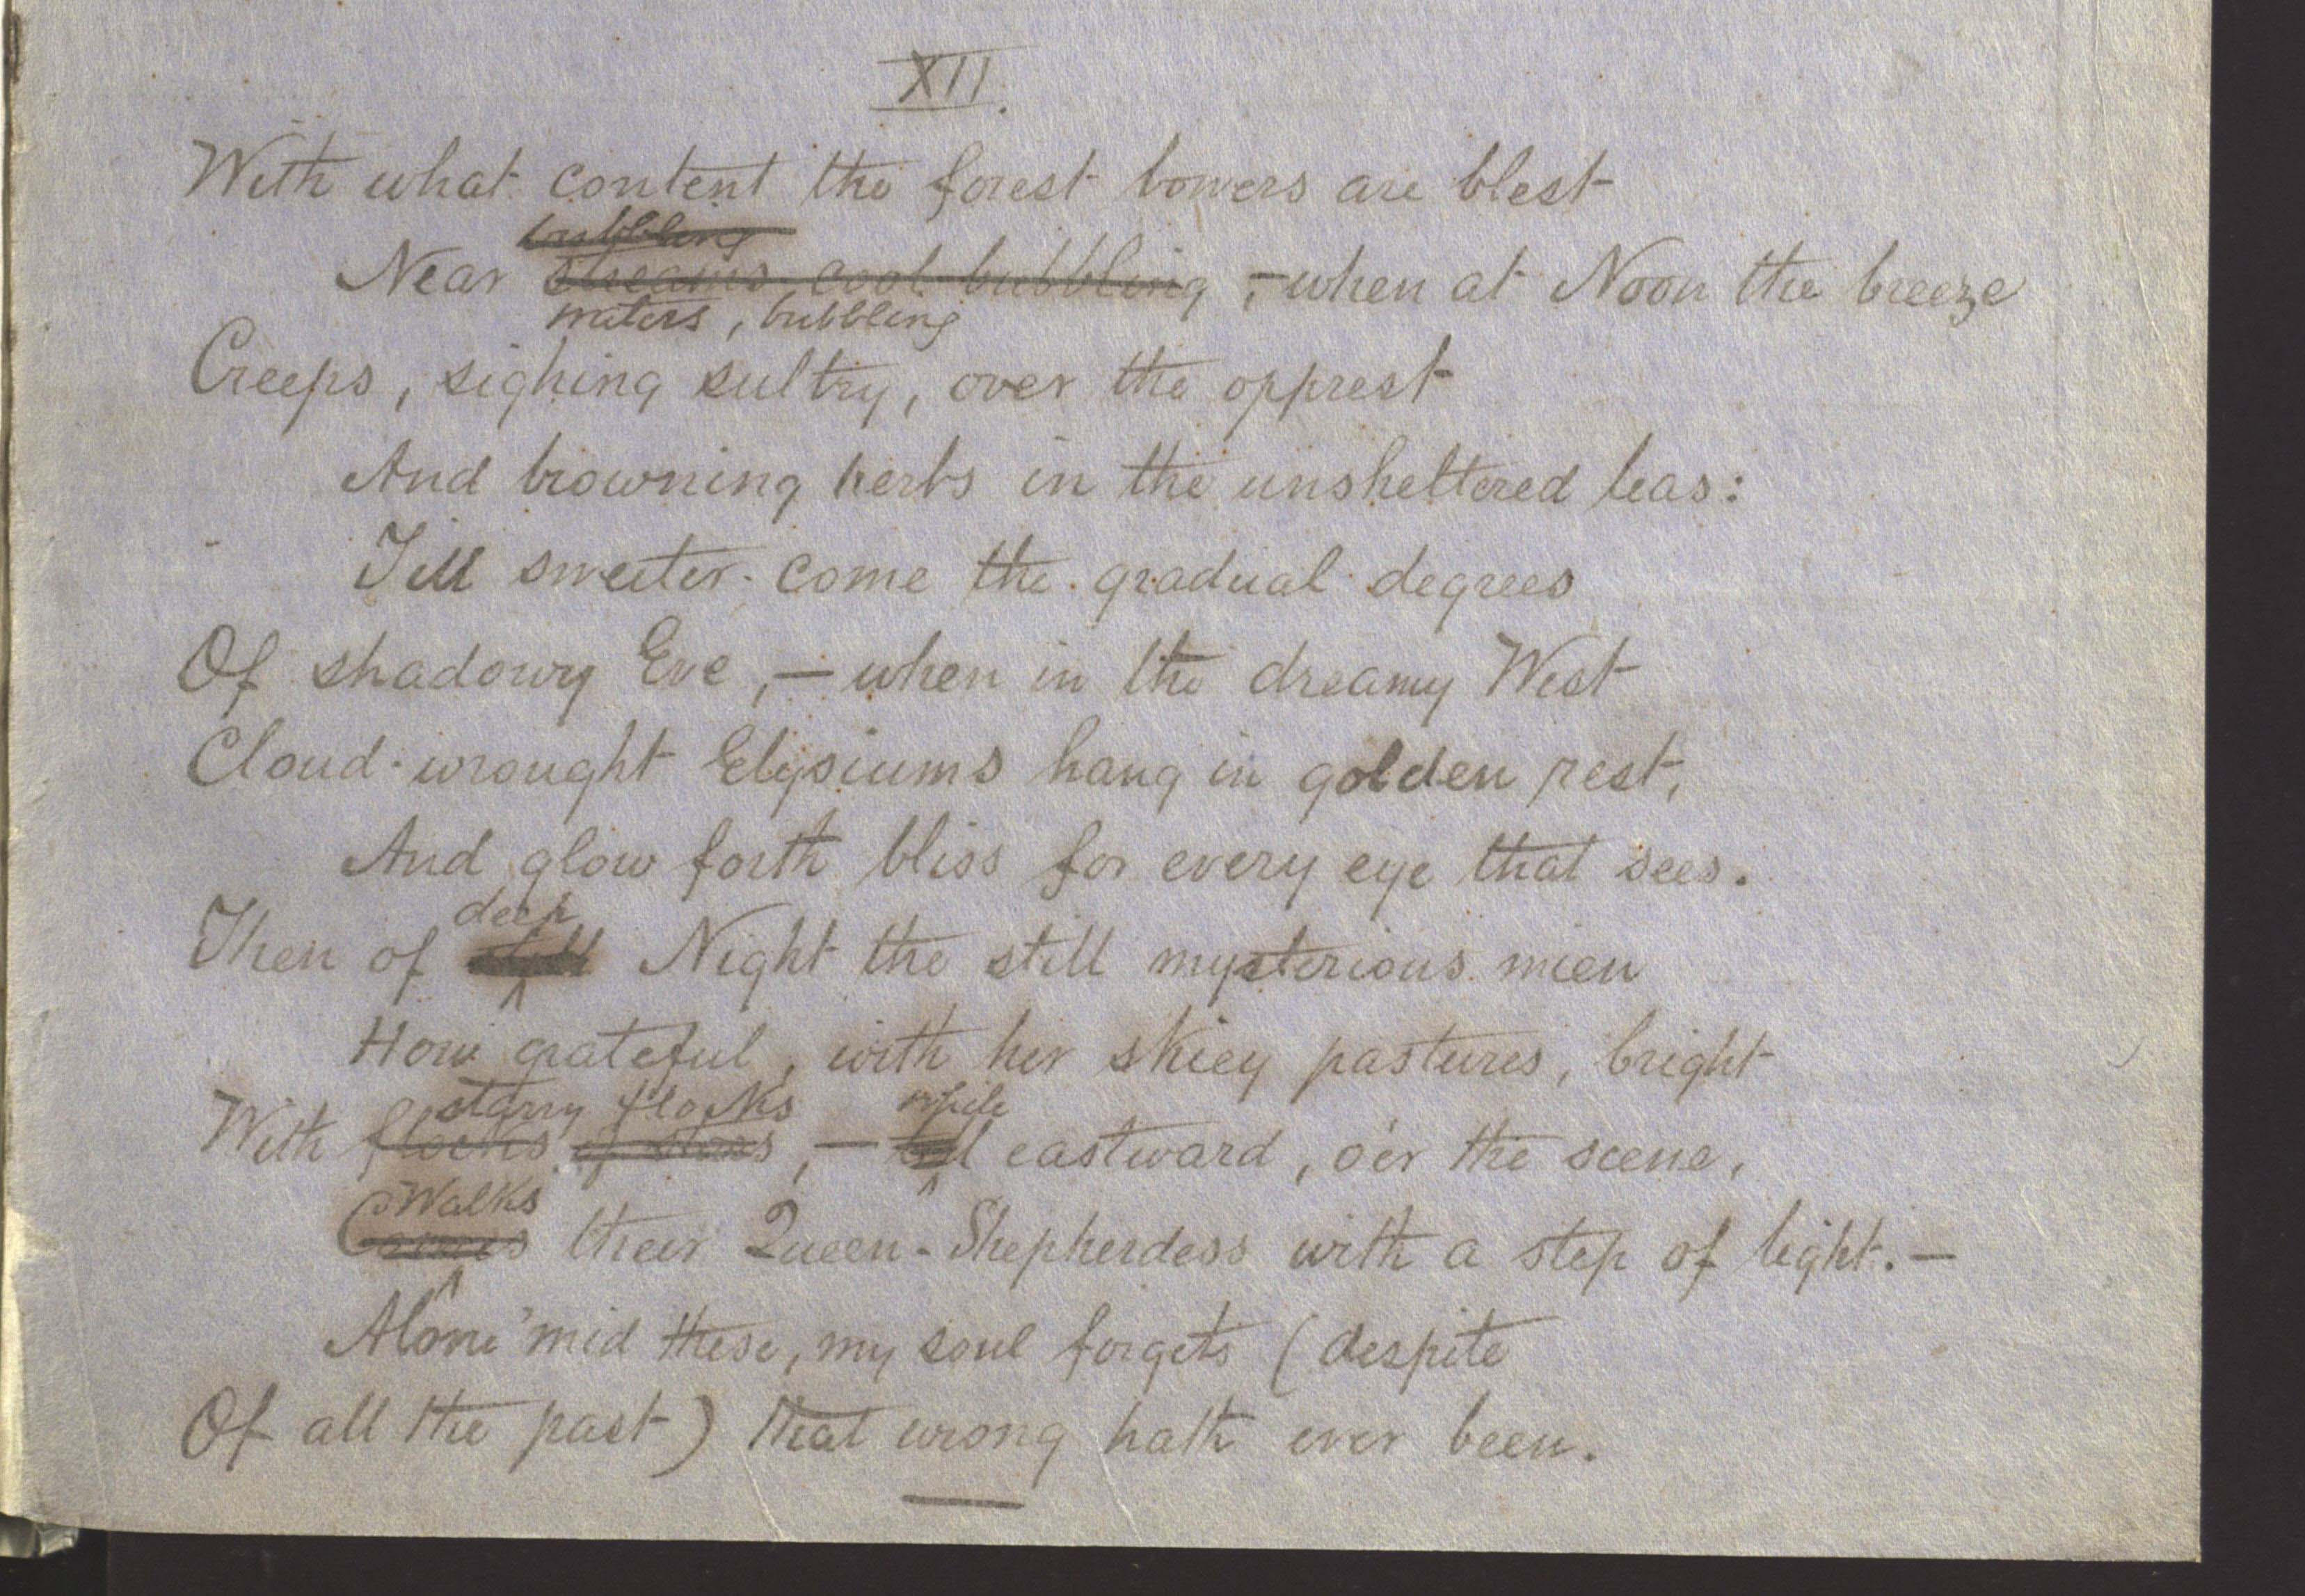 XII.
With what content the forest bowers are blest
bubbling
Near streams cool bubbling, – when at Noon the breeze
waters, bubbling
Creeps, sighing sultry, over the opprest
And browning herbs in the unsheltered leas:
Till sweeter come the gradual degrees
Of shadowy Eve, – when in the dreamy West
Cloud-wrought Elysiums hang in golden rest,
And glow forth bliss for every eye that sees.
deep
Then of still Night the still mysterious mien
How grateful, with her skiey pastures, bright
starry flocks while
With flocks of stars, – till eastward, o'er the scene,
Walks
Comes their Queen-Shepherdess with a step of light. –
Alone 'mid these, my soul forgets (despite
Of all the past) that wrong hath ever been.